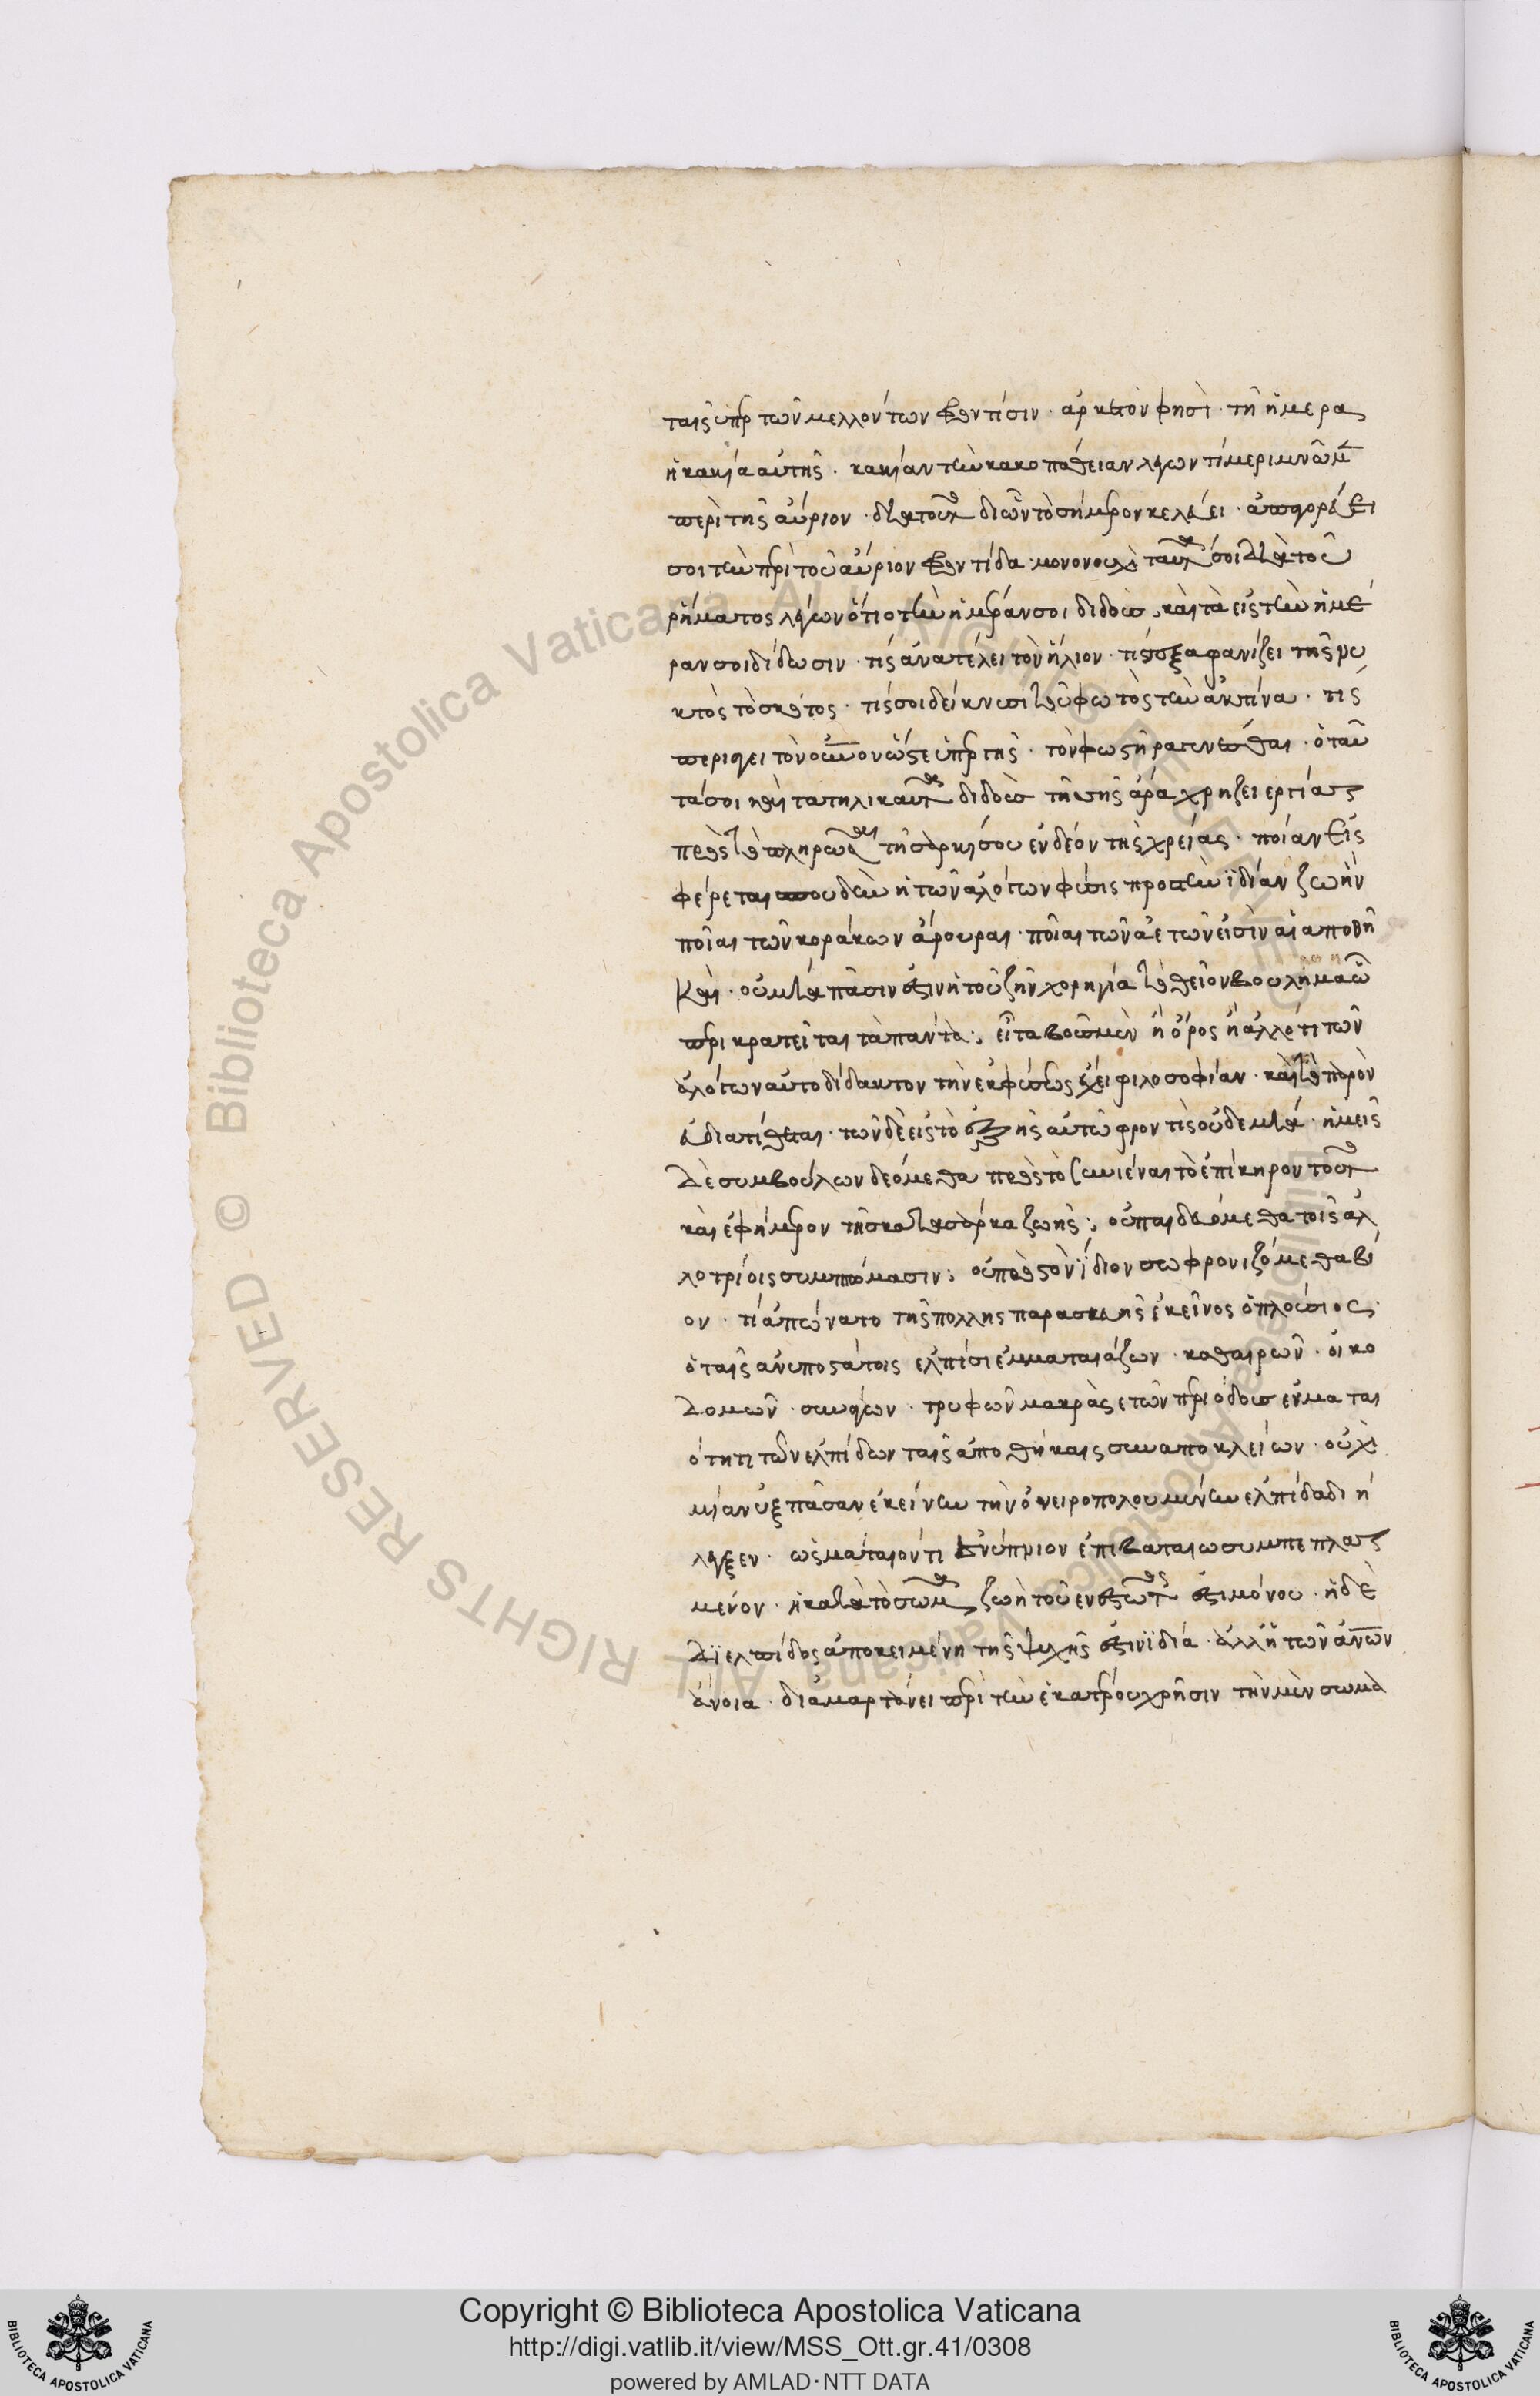 ταῖς ὑπὲρ τῶν μελλόντων φροντίσιν · ἀρκετὸν φησὶ · τῇ ἡμέρα
ἡ κακία αὐτῆς · κακίαν τὴν κακοπάθειαν λέγων τί μεριμνῶμεν
περὶ τῆς αὔριον · διὰ τοῦτο δι ὧν τὸ σήμερον κελεύει · ἀπαγορεύει
σοι τὴν περὶ τοῦ αὔριον φροντίδα · μονονουχὶ ταῦτα σοι διὰ τοῦ
ῥήματος λέγων ὅτι ὁ τὴν ἡμέραν σοι διδοὺς, καὶ τὰ εἰς τὴν ἡμέ
ραν σοι δίδωσιν · τίς ἀνατέλει τὸν ἥλιον · τίς ἐξαφανίζει τῆς νυ
κτὸς τὸ σκότος · τίς σοι δείκνυσι τοῦ φωτὸς τὴν ἀκτίνα · τίς
περιάγει τὸν οὐνον ὥστε ὑπὲρ γῆς · τὸν φωστῆρα γενέσθαι · ὁ ταῦ
τά σοι καὶ τα τηλικαῦτα διδοὺς τῆς σῆς ἆρα χρήζει συνεργίας
πρὸς τὸ πληρωθῆναι τῇ σαρκί σου ἐνδέον τῆς χρείας · ποίαν εἰς
φέρεται σπουδὴν ἡ τῶν ἀλόγων φύσις προς τὴν ἰδίαν ζωήν
ποῖαι τῶν κοράκων ἄρουραι · ποῖαι τῶν ἀετῶν εἰσὶν αἱ αποθῆ
και · οὐ μία πᾶσιν ἐστιν ἡ τοῦ ζῆν χορηγία τὸ θεῖον βουλημα ὧ
περικρατεῖται τὰ πάντα ; εἶτα βοῦς μὲν ἢ ὄρος ἢ ἄλλό τι τῶν
ἀλόγων αὐτοδίδακτον τὴν ἐκ φύσεως ἔχει φιλοσοφίαν · καὶ τὸ παρὸν
εὖ διατίθεται · τῶν δὲ εἰς τὸ ἑξῆς αὐτῷ φροντὶς οὐδεμία · ἡμεῖς
δὲ συμβούλων δεόμεθα πρὸς τὸ συνιέναι τὸ ἐπίκηρον τοῦτο
καὶ ἐφήμερον τῆς κατὰ σάρκα ζωῆς ; οὐ παιδευόμεθα τοῖς ἀλ
λοτρίοις συμπτώμασιν ; οὐ πρὸς τὸν ἴδιον σωφρονιζόμεθα βί
ον · τί ἀπώνατο τῆς πολλης παρασκευῆς ἐκεῖνος ὁ πλούσιος
ὁ ταῖς ἀνυποστάτοις ἐλπίσι ἐμματαιάζων · καθαιρῶν · οἰκο
δομῶν · συνάγων · τρυφῶν μακρὰς ετῶν περιόδους ἐν μαται
ότητι τῶν ἐλπίδων ταῖς ἀποθήκαις συναποκλείων · οὐχὶ
μία νὺξ πᾶσαν ἐκείνην τὴν ὀνειροπολουμένην ἐλπίδα διή
λεγξεν · ὡς μάταιόν τι ἐνύπνιον ἐπι ματαίω συμπεπλασ
μενον · ἡ κατὰ τὸ σῶμα ζωὴ τοῦ ἐνεστῶτος ἐστι μόνου · ἡ δὲ
δι ἐλπίδος ἀποκειμένη τῆς ψυχῆς ἐστιν ἰδία · ἀλλ ἡ τῶν ἀνῶν
ἄνοια · διαμαρτάνει περὶ τὴν ἑκατέρου χρῆσιν τὴν μὲν σωμα
Copyright © Biblioteca Apostolica Vaticana
http://digi.vatlib.it/view/MSS_Ott.gr.41/0308
powered by AMLAD·NTT DATA